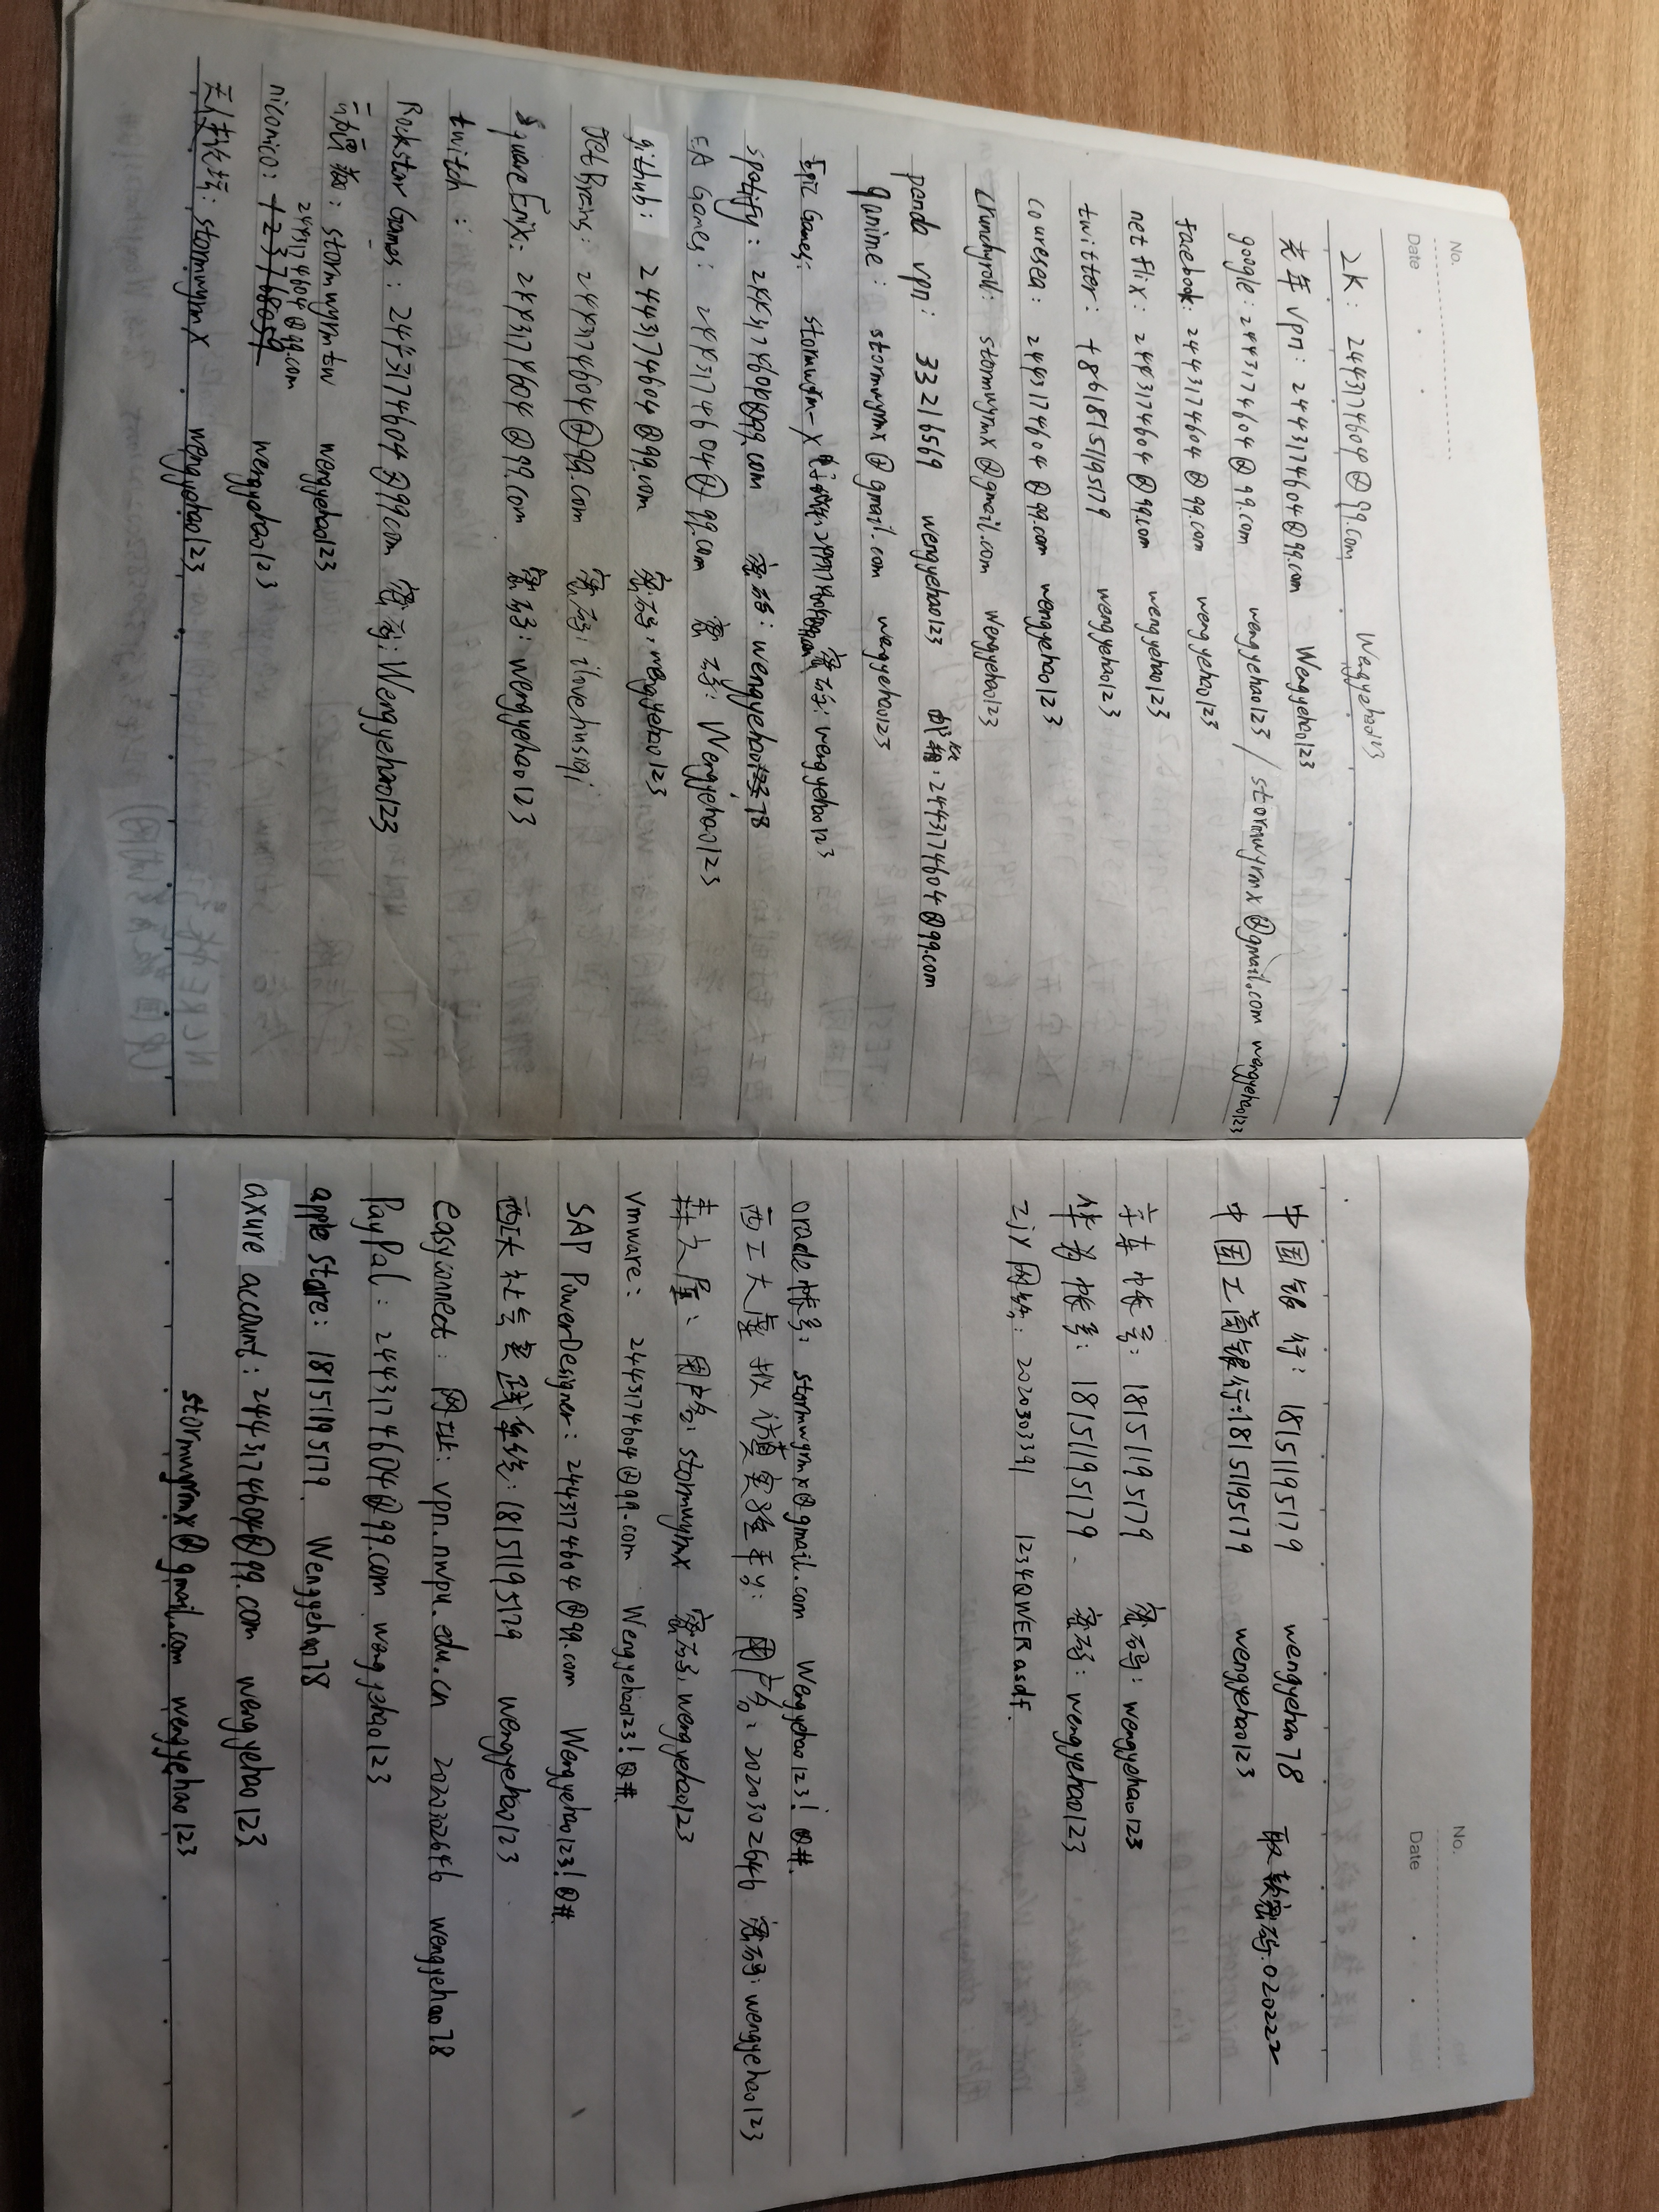 No.
Date
2K: 2443174604@qq.com Wengyehao123
光年vpn: 2443174604@qq.com Wengyehao123
google: 2443174604@qq.com wengyehao123 / stormwyrmx@gmail.com wengyehao123
facebook: 2443174604@qq.com wengyehao123
netflix: 2443174604@qq.com wengyehao123
twitter: +8618151195179 wengyehao123
couresea: 2443174604@qq.com wengyehao123
crunchyroll: stormwyrmx@gmail.com wengyehao123
panda vpn: 33216569 wengyehao123 邮箱:2443174604@qq.com
qanime: stormwyrmx@gmail.com wengyehao123
Epic Games: stormwyrm-x 电子邮件:2443174604@qq.com 密码: wengyehao123
spotify: 2443174604@qq.com 密码: wengyehao78
EA Games: 2443174604@qq.com 密码: Wengyehao123
github: 2443174604@qq.com 密码: wengyehao123
JetBrains: 2443174604@qq.com 密码: ilovehusiqi
SquareEnix: 2443174604@qq.com 密码: wengyehao123
twitch:
Rockstar Games: 2443174604@qq.com 密码: Wengyehao123
动画疯: stormwyrmtw wengyehao123
2443174604@qq.com
niconico: 123768059 wengyehao123
天使论坛: stormwyrmx wengyehao123
No.
Date
中国银行: 18151195179 wengyehao78 取款密码:020222
中国工商银行:18151195179 wengyehao123
京东帐号: 18151195179 密码: wengyehao123
华为帐号: 18151195179 密码: wengyehao123
zjy网络: 2020303391 1234QWERasdf.
oracle帐号: stormwyrmx@gmail.com Wengyehao123!@#.
西工大虚拟仿真实验平台: 用户名: 2020302646 密码: wengyehao123
森之屋: 用户名: stormwyrmx 密码: wengyehao123
vmware: 2443174604@qq.com Wengyehao123!@#.
SAP PowerDesigner: 2443174604@qq.com Wengyehao123!@#.
西工大社会实践系统: 18151195179 wengyehao123
easyconnect: 网址: vpn.nwpu.edu.cn 2020302646 wengyehao78
PayPal: 2443174604@qq.com wengyehao123
apple store: 18151195179. Wengyehao78
axure account: 2443174604@qq.com wengyehao123
stormwyrmx@gmail.com wengyehao123